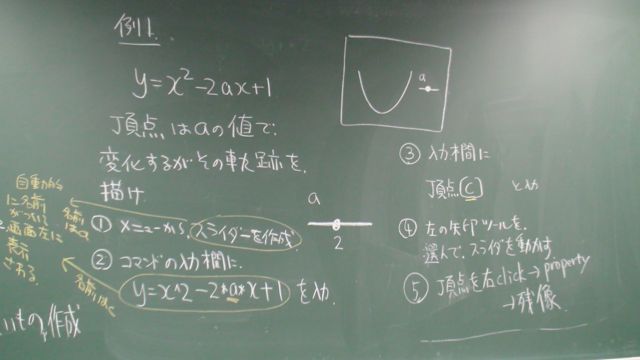 例1.
y=x²-2ax+1
頂点はaの値で
変化するがその軌跡を
描け
① メニューから、スライダーを作成
② コマンドの入力欄に
y=x^2-2*a*x+1 を入力
名前はa
名前はc
に名前
画面左に
表示
される
作成
a
2
a
③ 入力欄に
頂点[c] と入力
④ 左の矢印ツールを
選んで、スライダを動かす
⑤ 頂点を右click→property
→残像